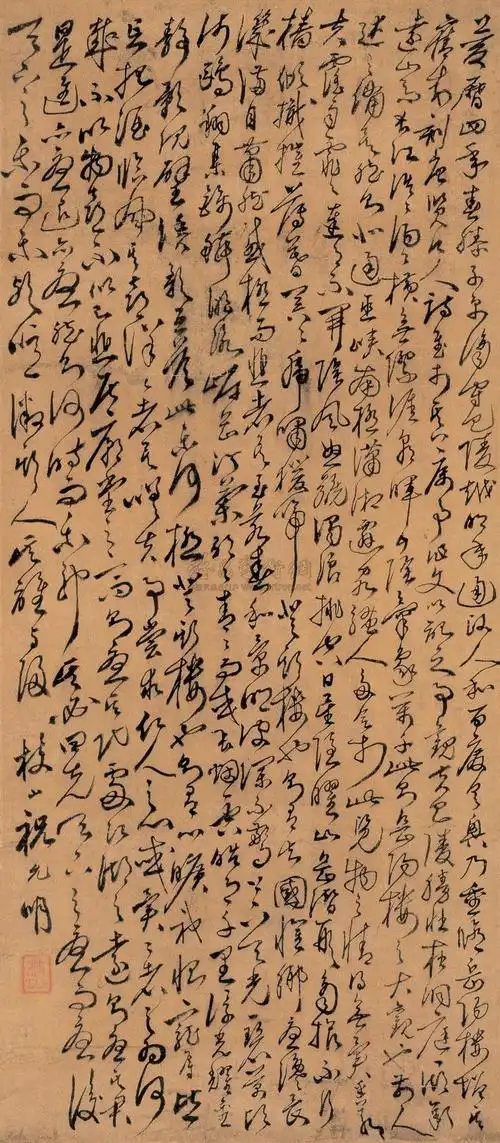 慶曆四年春滕子京謫守巴陵越明年通政人和百廢具興乃重修岳陽樓增其
舊制刻唐賢今人詩賦於其上屬予作文以記之予觀夫巴陵勝狀在洞庭一湖銜
遠山吞長江浩浩湯湯橫無際涯朝暉夕陰氣象萬千此則岳陽樓之大觀也前人
述之備矣然則北通巫峽南極瀟湘遷客騷人多會於此覽物之情得無異乎若
夫霪雨霏霏連月不開陰風怒號濁浪排空日星隱曜山岳潛形商旅不行
檣傾楫摧薄暮冥冥虎嘯猿啼登斯樓也則有去國懷鄉憂讒畏
譏滿目蕭然感極而悲者矣至若春和景明波瀾不驚上下天光一碧萬頃
沙鷗翔集錦鱗游泳岸芷汀蘭郁郁青青而或長煙一空皓月千里浮光耀金
靜影沉璧漁歌互答此樂何極登斯樓也則有心曠神怡寵辱皆
忘把酒臨風其喜洋洋者矣嗟夫予嘗求仁人之心或異二者之為何
哉不以物喜不以己悲居廟堂之高則憂其民處江湖之遠則憂其君
是進亦憂退亦憂然則何時而樂耶其必曰先天下之憂而憂後
天下之樂而樂歟噫微斯人吾誰與歸 枝山祝允明